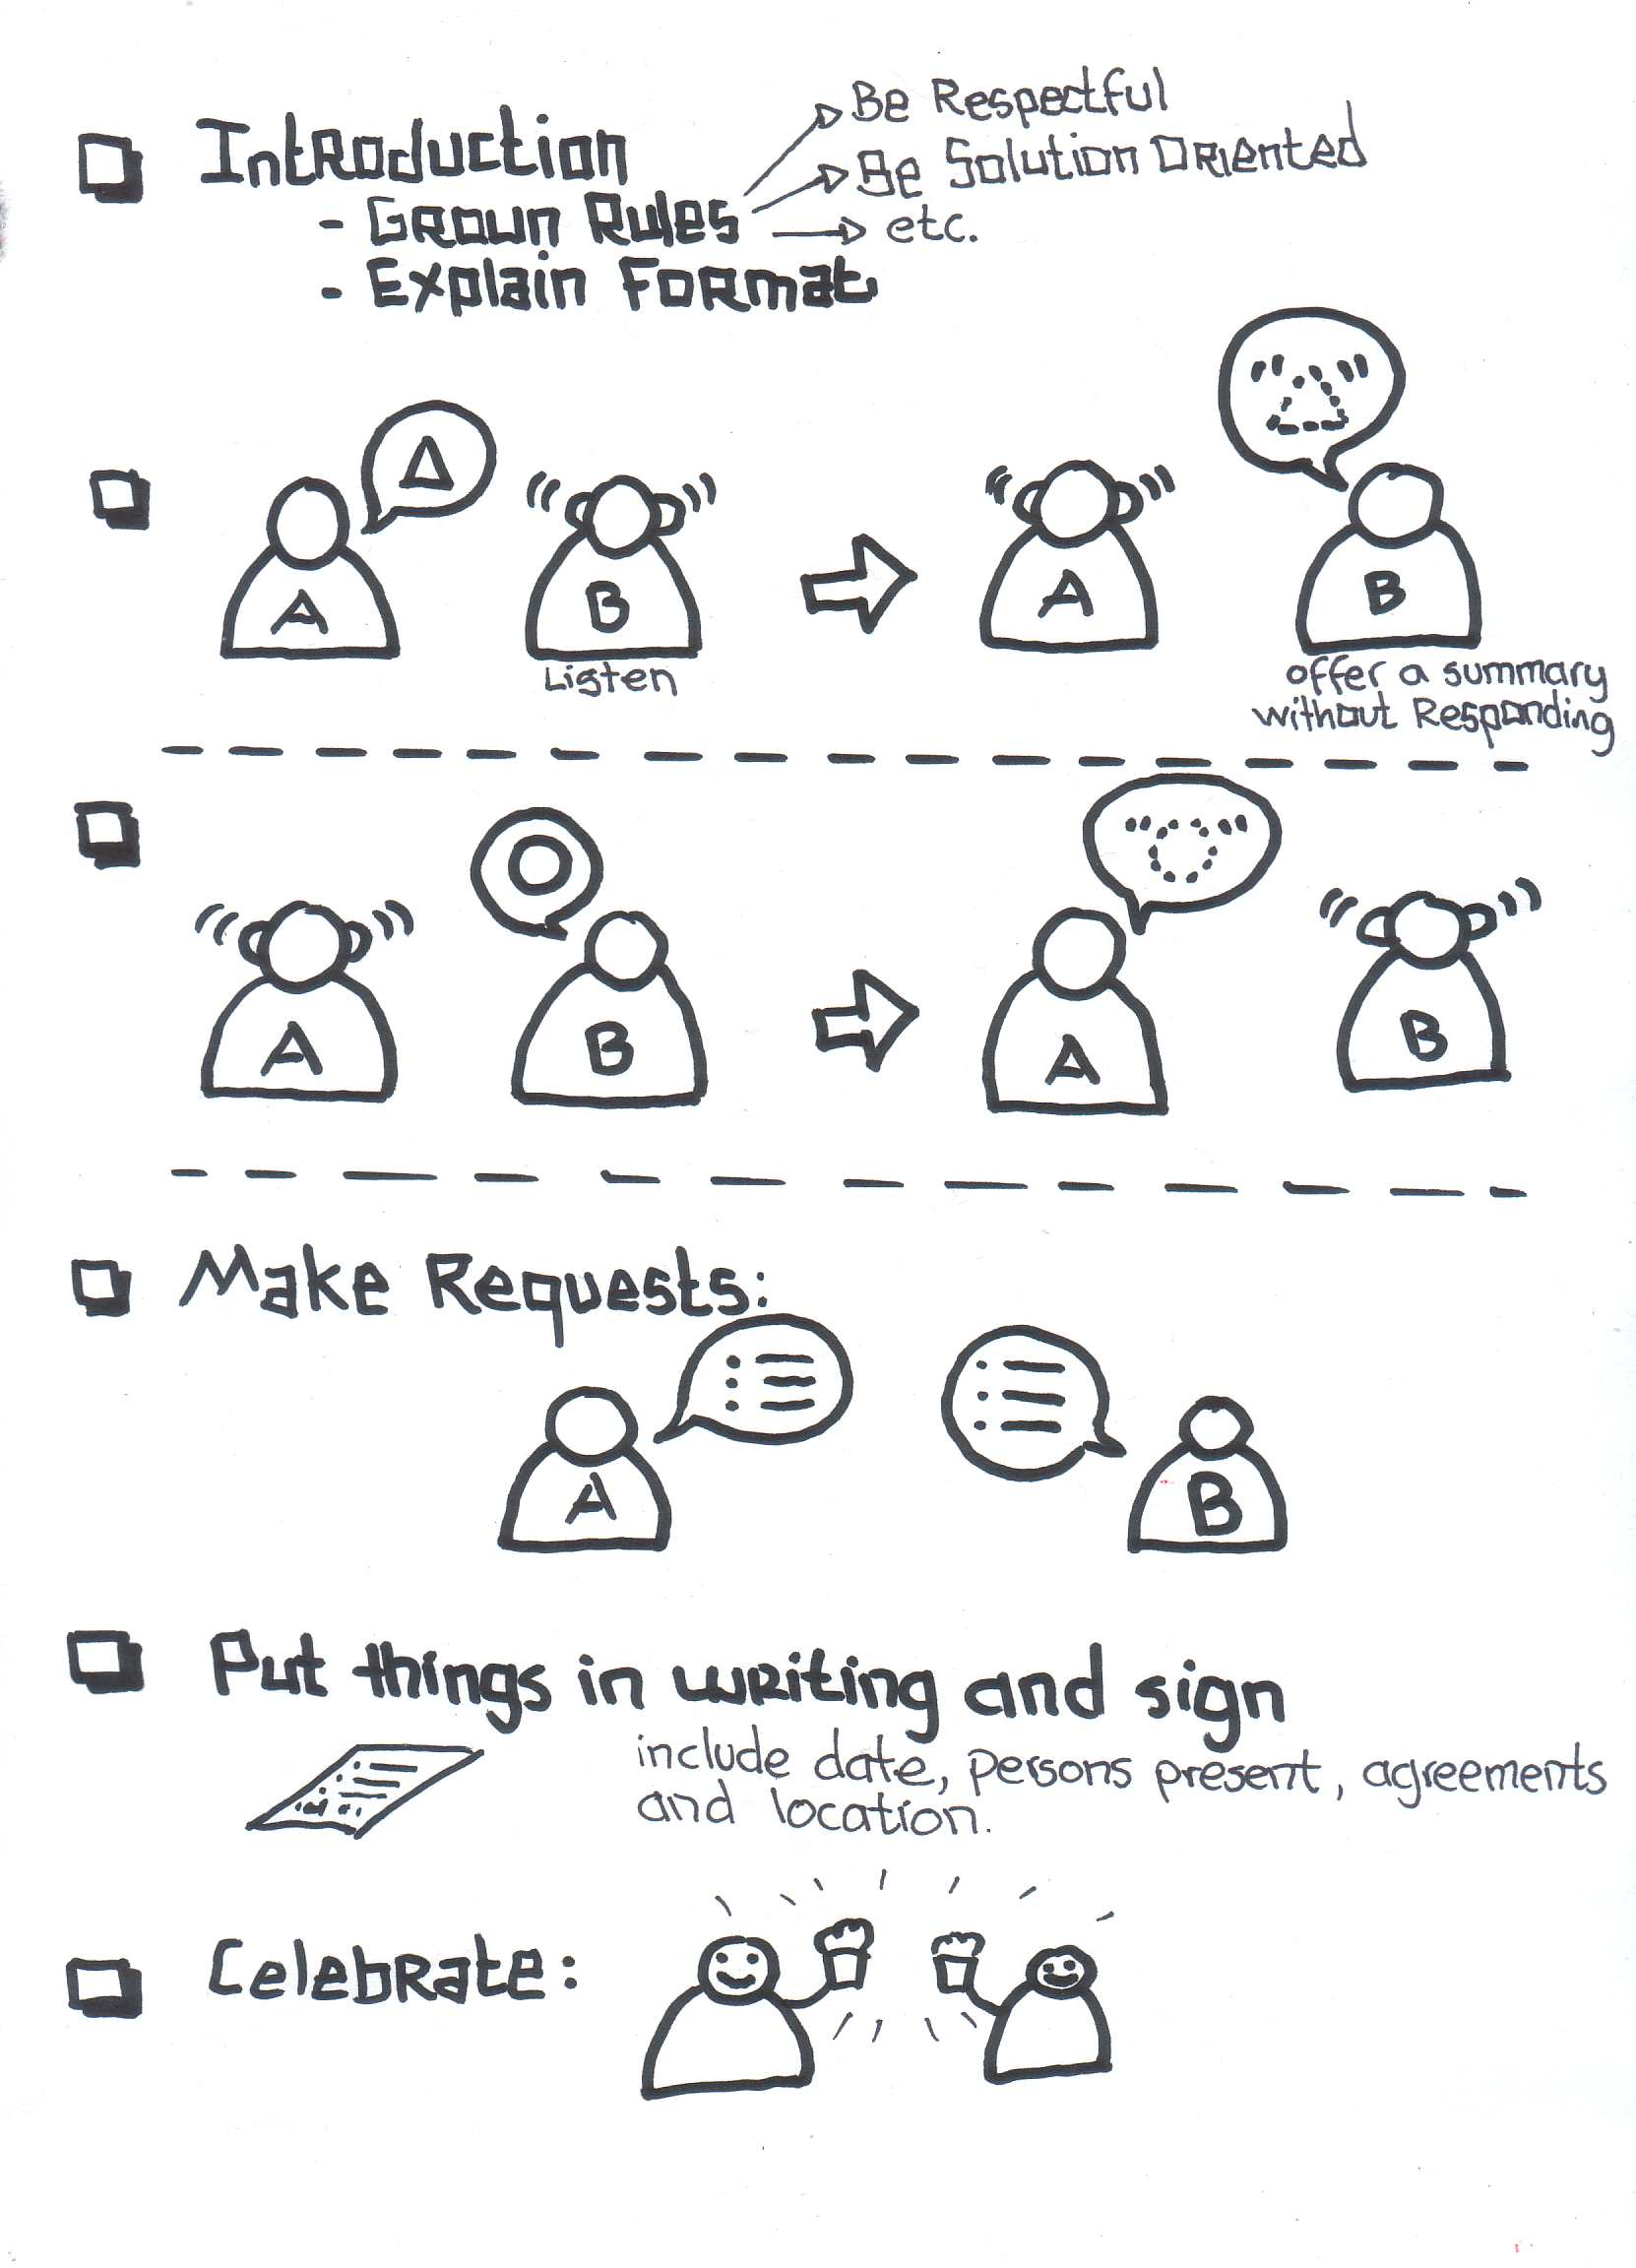 Introduction
- Groun Rules
Be Respectful
Be Solution Oriented
etc.
- Explain Format
A
B
A
B
Listen
offer a summary
without Responding
A
B
A
B
Make Requests:
A
B
Put things in writing and sign
include date, persons present, agreements
and location.
Celebrate: